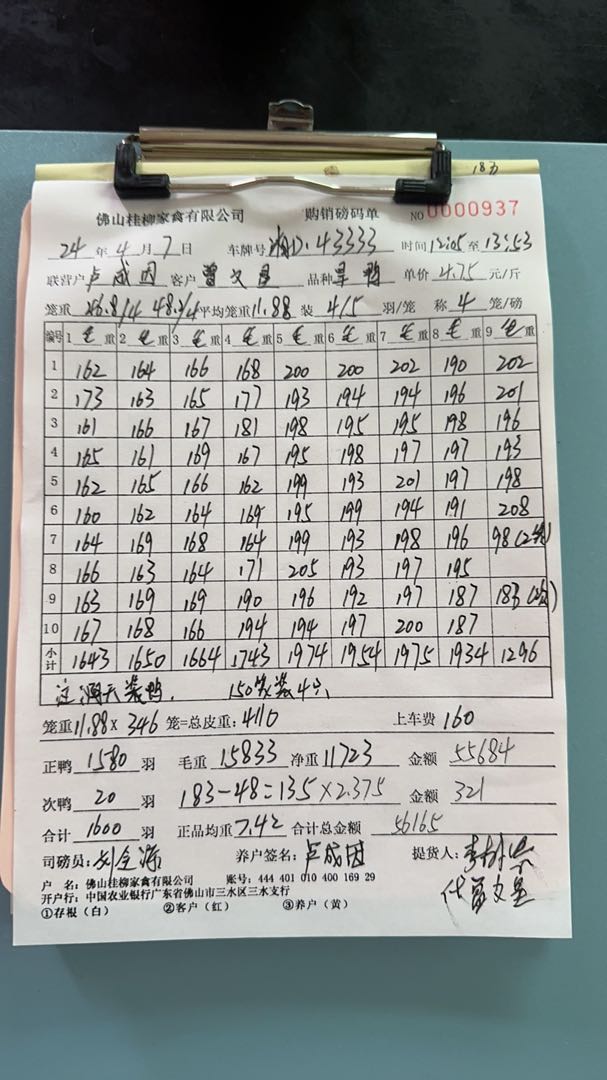 183
佛山桂柳家禽有限公司 购销磅码单 NO 0000937
24 年 4 月 7 日 车牌号 湘D·43333 时间 12:05 至 13:53
联营户 卢成因 客户 曾文星 品种 旱鸭 单价 4.75 元/斤
笼重 46.8/4 48.2/4 平均笼重 11.88 装 4/5 羽/笼 称 4 笼/磅
编号 1 毛 重 2 毛 重 3 毛 重 4 毛 重 5 毛 重 6 毛 重 7 毛 重 8 毛 重 9 毛 重
1 162 164 166 168 200 200 202 190 202
2 173 163 165 177 193 194 194 196 201
3 161 166 167 181 198 195 195 198 196
4 165 161 169 167 195 198 197 197 193
5 162 165 166 162 199 193 201 197 198
6 160 162 164 169 195 199 194 191 208
7 164 169 168 164 199 193 198 196 98(2笼)
8 166 163 164 171 205 193 197 195
9 163 169 169 190 196 192 197 187 183
10 167 168 166 194 194 197 200 187
小计 1643 1650 1664 1743 1974 1954 1975 1934 1296
注 雨天装鸭, 150笼装4只
笼重 11.88 × 346 笼=总皮重: 4110 上车费 160
正鸭 1580 羽 毛重 15833 净重 11723 金额 55684
次鸭 20 羽 183-48=135×2.375 金额 321
合计 1600 羽 正品均重 7.42 合计总金额 56165
司磅员: 养户签名: 卢成因 提货人:
代曾文星
户 名: 佛山桂柳家禽有限公司 账号: 444 401 010 400 169 29
开户行: 中国农业银行广东省佛山市三水区三水支行
①存根(白) ②客户(红) ③养户(黄)